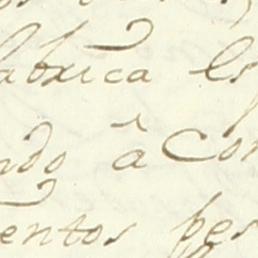 fabrica es
ndo â Con
entos pes